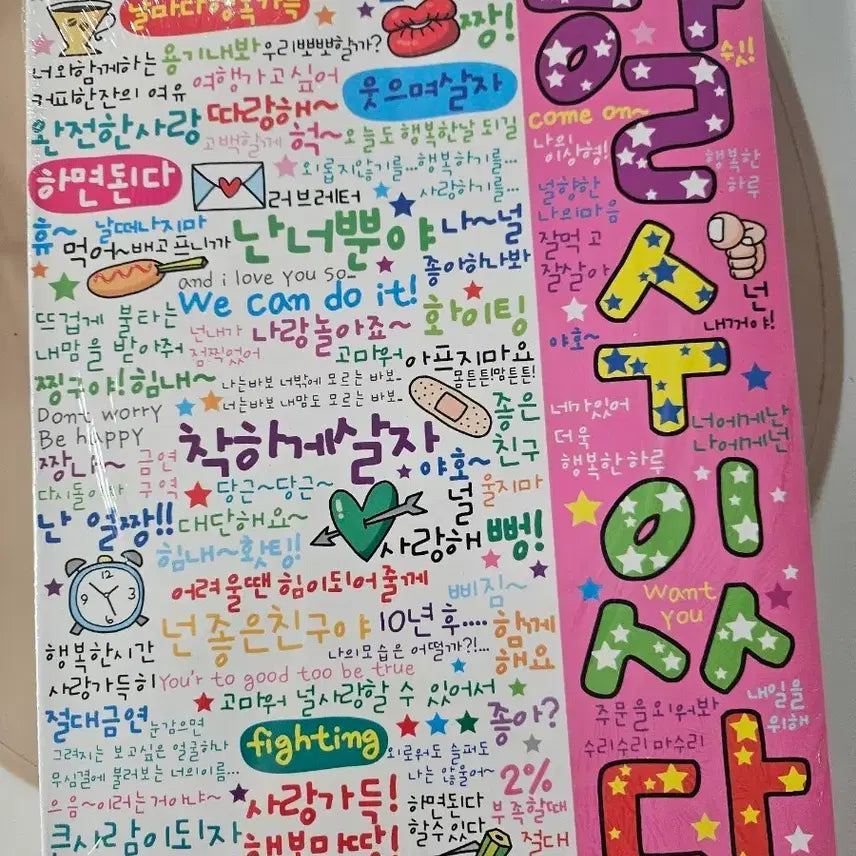 날마다행복가득
짱!
너와함께하는 용기내봐 우리뽀뽀할까?
커피한잔의 여유 여행가고싶어 웃으며살자
완전한사랑 따랑해~
고백할께 헉~ 오늘도 행복한날 되길
하면된다 외롭지않기를...행복하기를...
사랑하기를...
러브레터
휴~ 날떠나지마 난너뿐야 나~널
먹어~배고프니까 좋아하나봐
and i love you so_
We can do it!
뜨겁게 불타는 넌내가 나랑놀아죠~ 화이팅
내맘을 받아줘 점찍었어 고마워 아프지마요
몸튼튼!맘튼튼!
찡구야!힘내~ 나는바보 너밖에 모르는 바보_
너는바보 내맘도 모르는 바보_
Dont worry
Be happy
착하게살자 좋은
친구
짱나~ 금연
구역
당근~당근~ 야호~ 널 울지마
난 얼짱!! 대단해요~ 사랑해 뻥!
힘내~홧팅!
어려울땐 힘이되어줄게 삐짐~
넌좋은친구야 10년후.... 함께
해요
나의모습은 어떨까?!...
행복한시간
사랑가득히 You'r to good too be true
고마워 널사랑할 수 있어서
절대금연 눈감으면 좋아?
그려지는 보고싶은 얼굴하나 fighting 외로워도 슬퍼도
무심결에 불러보는 너의이름... 나는 않울어~ 2%
부족할때
으음~이러는거야냐~ 사랑가득! 하면된다
할수있다 절대
큰사람이되자 행복만땅!
할수있다
쉿!
come on~
나의
이상형!
행복한
하루
널향한
나의마음
잘먹고
잘살아
넌
내꺼야!
야호~
네가있어
더욱
행복한하루
너에게난
나에게넌
want
you
내일을
위해
주문을외워봐
수리수리 마수리